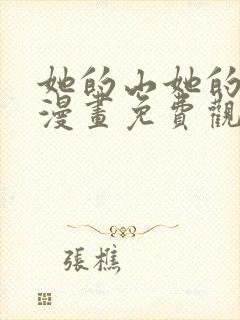 她的山她的
漫畫免費觀
張樵